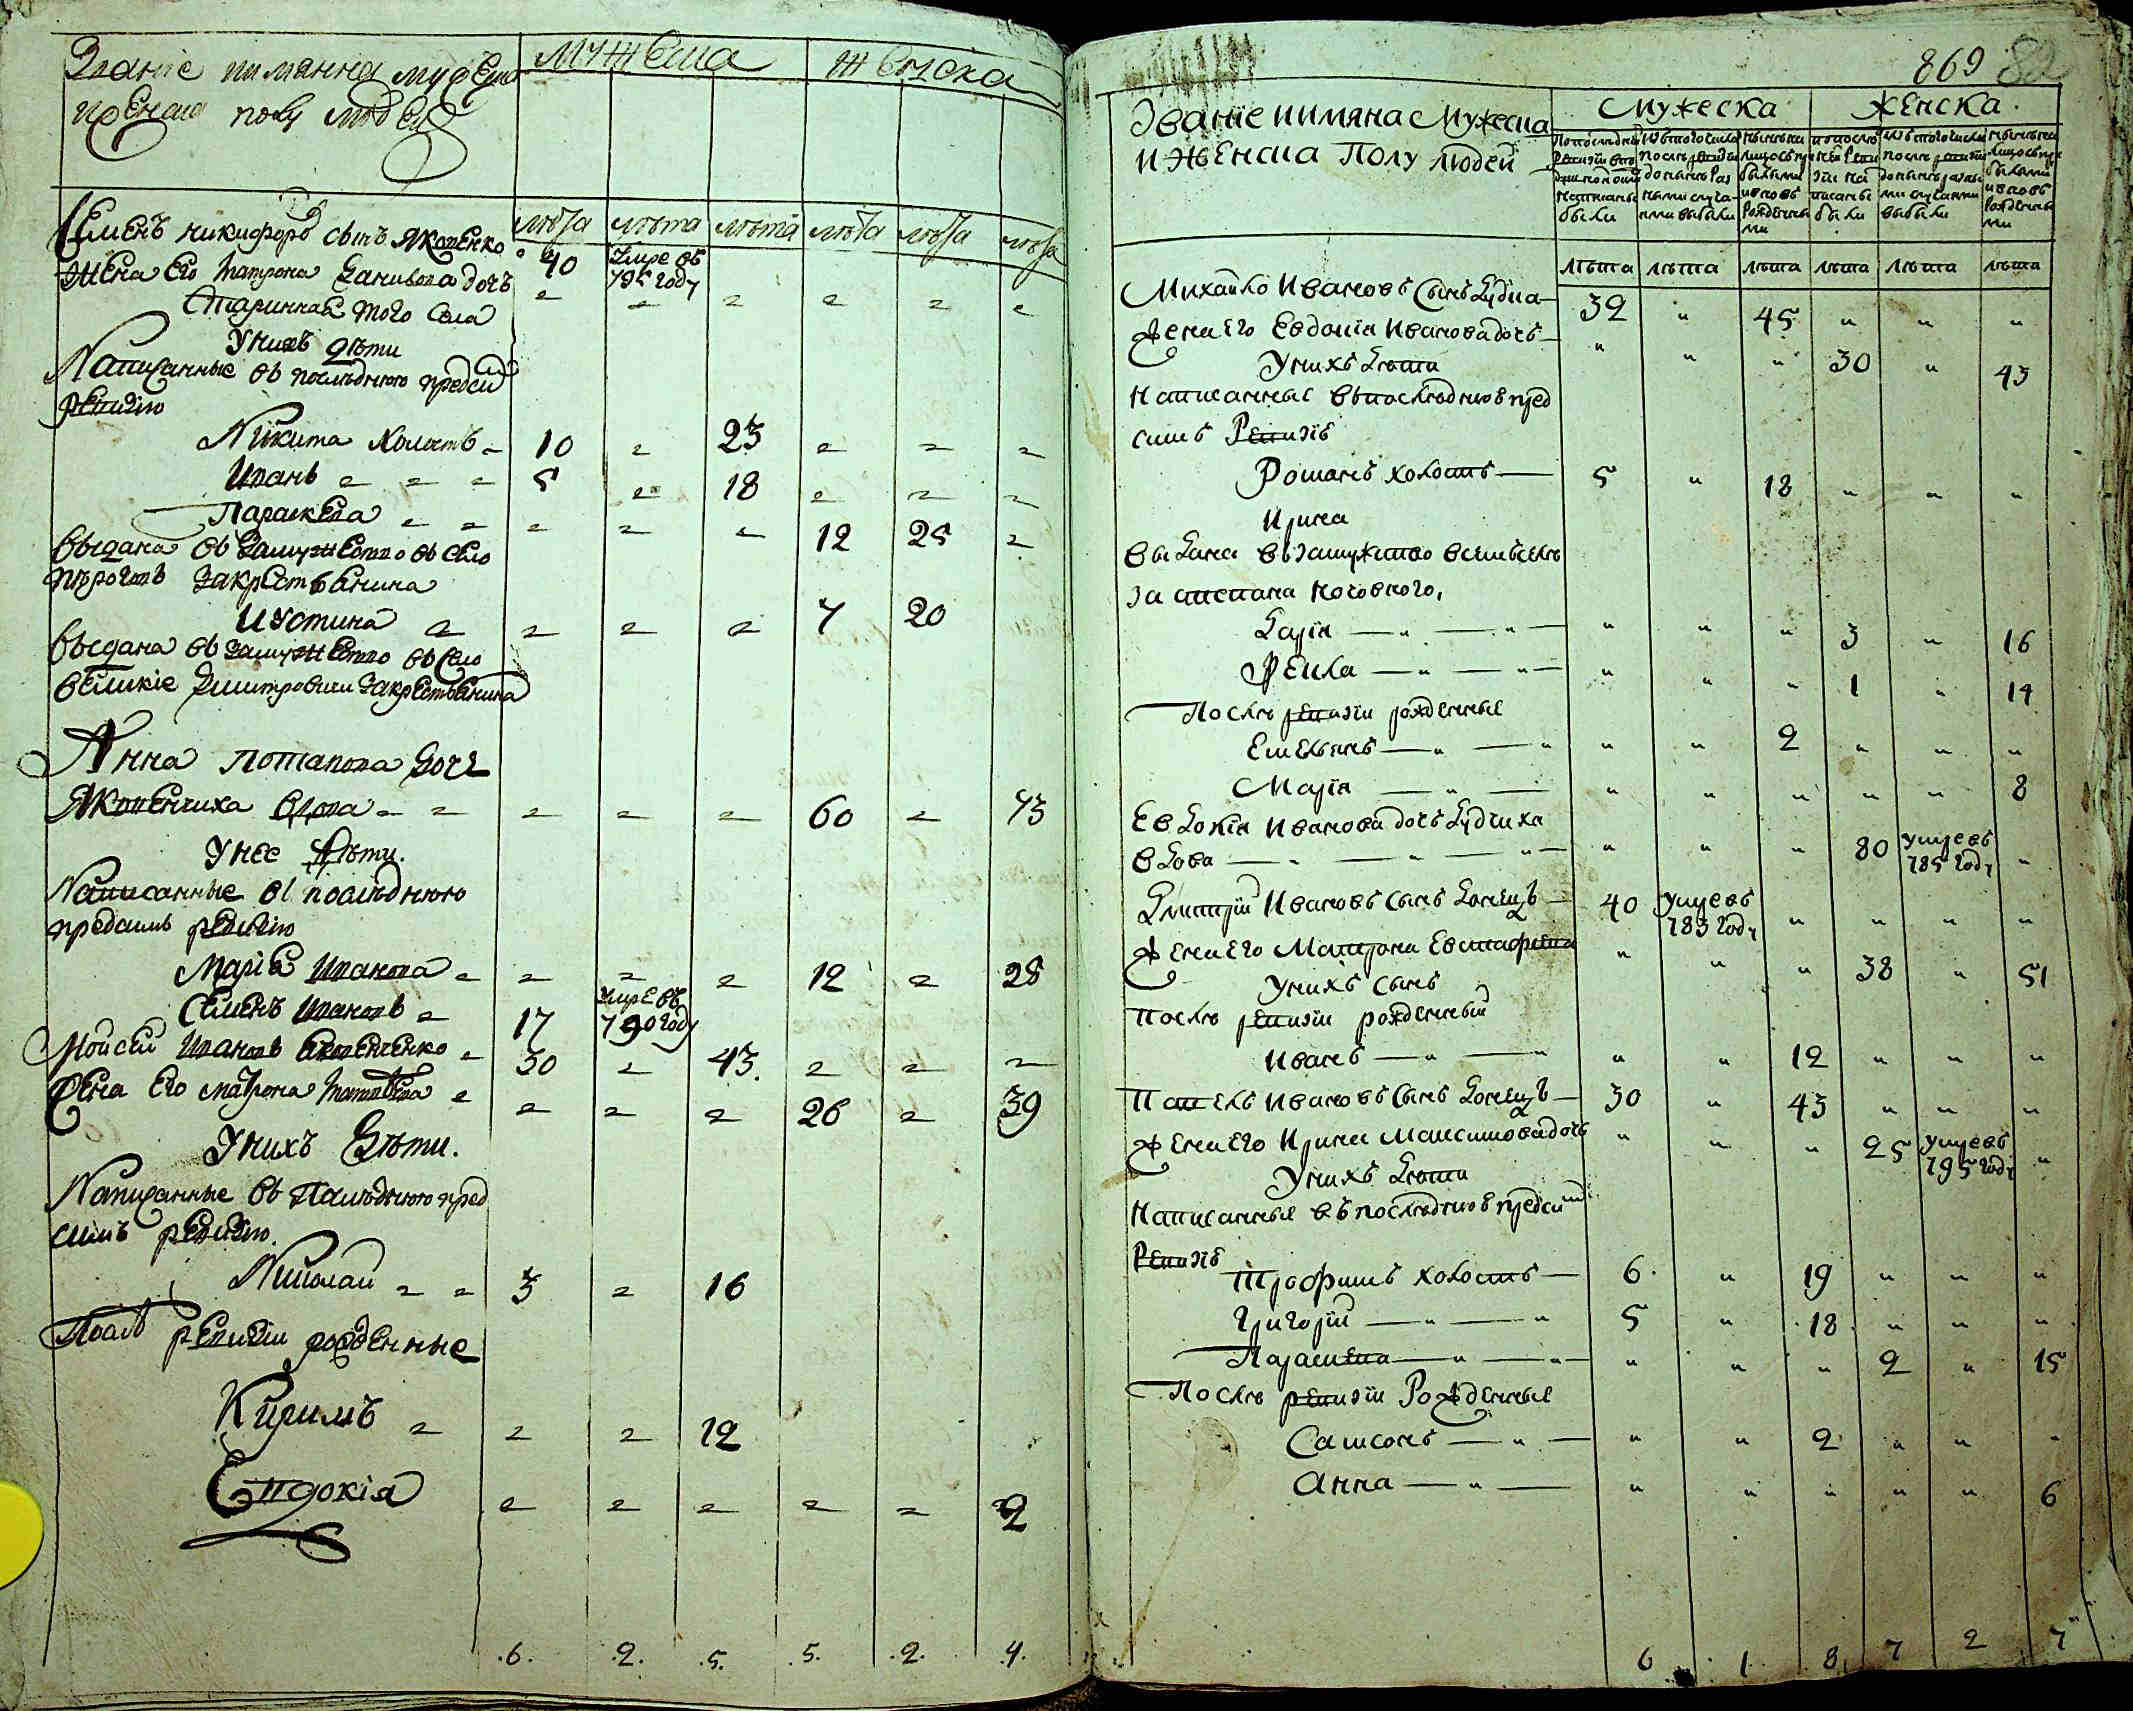 Званіе имянна мужеска
иженска полу людей
мужеска
женска
лѣта лѣта лѣта лѣта лѣта лѣта
Семенъ никифоровъ сынъ Яковенко 40 умре въ 795 году
Жена Его матрона данилова дочь
Старинная того села
Унихъ дѣти
Написанные въ послѣднюю предсимъ
ревизію
Никита холостъ 10 23
Иванъ 5 18
Параскева 12 25
выдана въ замужество въ село
закрестьянина
Иустина 7 20
выдана въ замужество въ село
великіе дмитровичи закрестьянина
Анна потапова дочь
вдова 60 73
Унее дѣти.
Написанные въ послѣднюю
предсимъ ревизію
Марія Иванова 12 25
Семенъ Ивановъ 17 умре въ 790 году
Мойсей Ивановъ Яковенченко 30 43.
Жена Его матрона матвѣева 26 39
Унихъ Дѣти.
Написанные въ Послѣднюю пред
симъ ревизію.
Николай 3 16
Послѣ ревизіи рожденные
Кирилъ 12
Евдокія 2
.6. .2. .5. .5. .2. .4.
869
Званіе иимяна Мужеска
иЖенска Полу людей
Мужеска
Женска
лѣта лѣта лѣта лѣта лѣта лѣта
Михайло Ивановъ Сынъ Дудка 32 " 45 " " "
Жена Его Евдокіа Иванова дочь " " " 30 " 43
Унихъ Дѣти
Написанные въпослѣднюю пред
симъ Ревизію
Романъ холостъ 5 " 18 " " "
Ирина
выдана взамужство
за степана
Дарія " " " 3 " 16
Фекла " " " 1 " 14
Послѣ ревизіи рожденные
Емельянъ " " 2 " " "
Марія " " " " " 8
Евдокіа Иванова дочь Дудчиха
вдова " " " 80 умре въ 785 году "
Дмитрій Ивановъ сынъ Донецъ 40 умре въ 783 году " " " "
Жена Его Матрона Евстафіева " " " 38 " 51
Унихъ сынъ
Послѣ ревизіи рожденный
Иванъ " " 12 " " "
Павелъ Ивановъ Сынъ Донецъ 30 " 43 " " "
Жена Его Ирина Максимова дочь " " " 25 умре въ 795 году "
Унихъ Дѣти
Написанные въ послѣднюю предсимъ
Ревизію
Трофимъ холостъ 6. " 19 " " "
Григорій 5 " 18. " " "
Параскева " " " 2 " 15
Послѣ ревизіи Рожденные
Самсонъ " " 2 " " "
Анна " " " " " 6
6 1 8 7 2 7